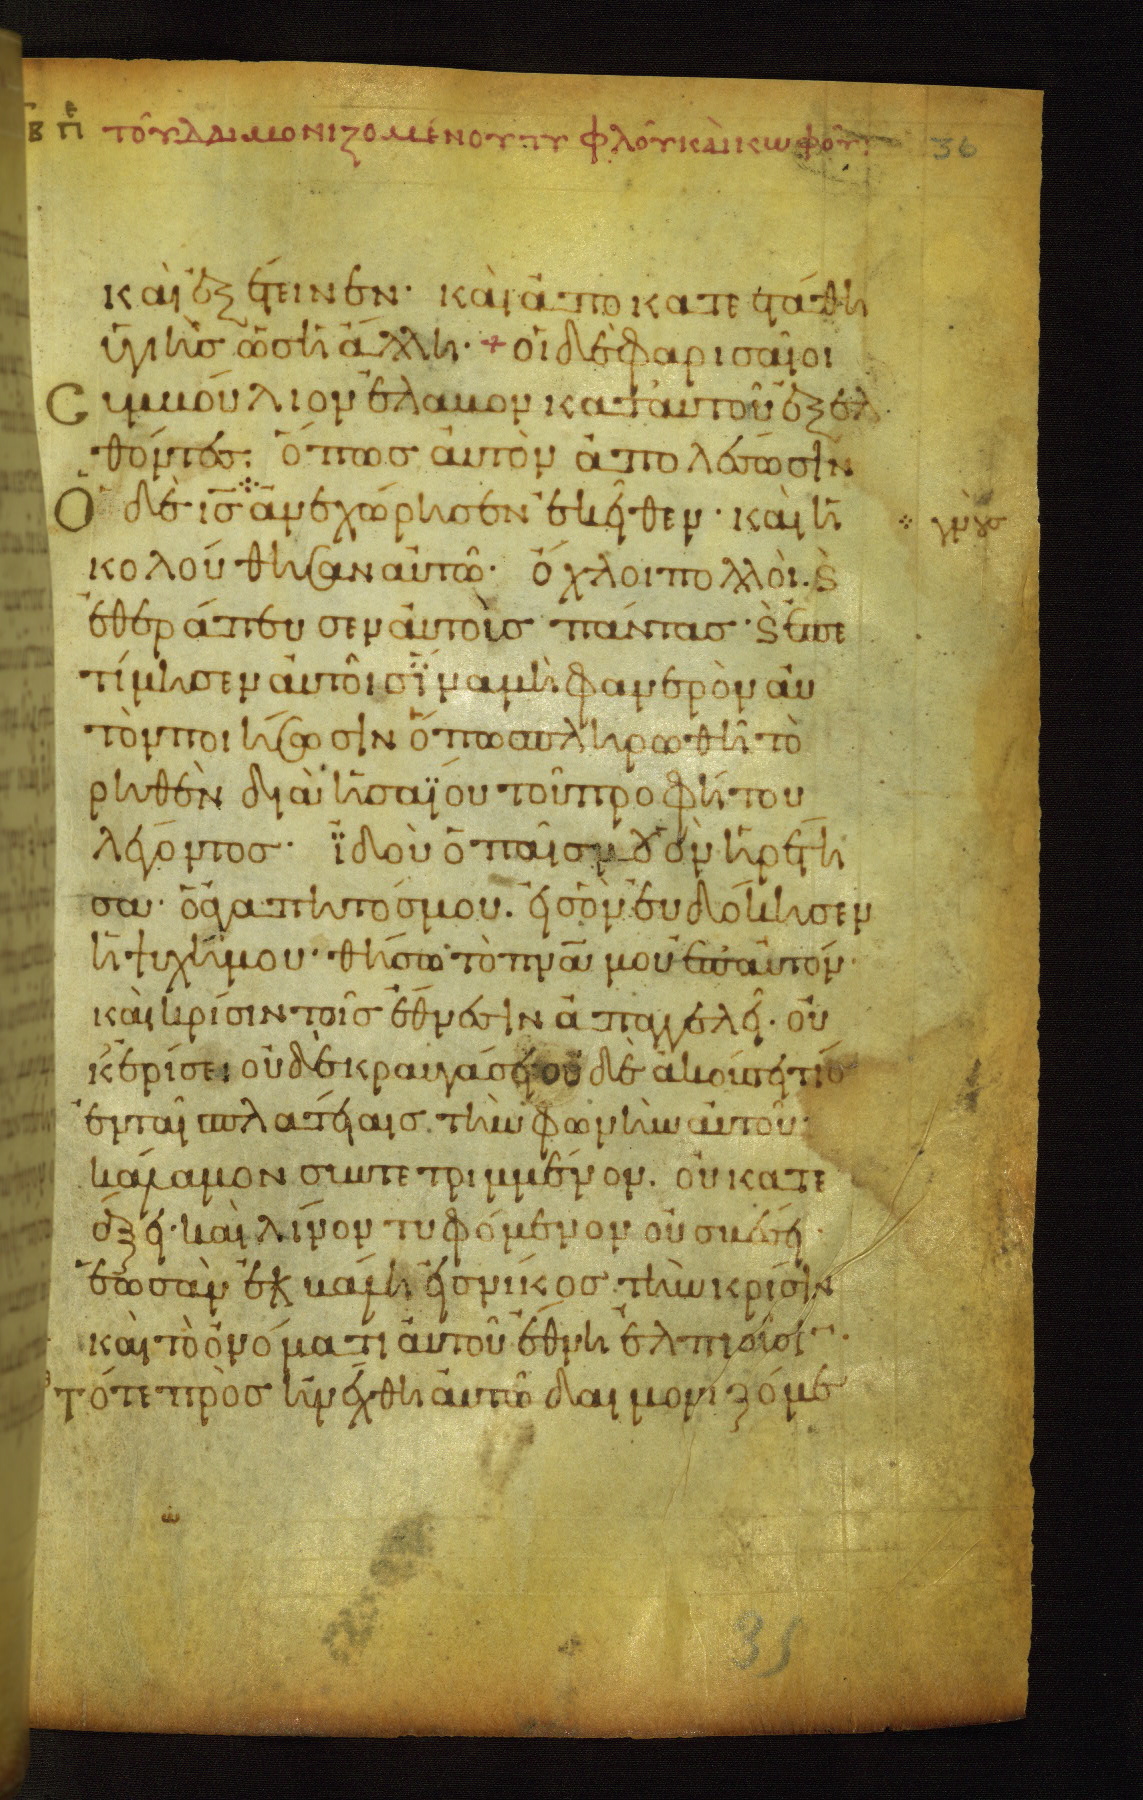 κβ πε τοῦ δαιμονιζομένου τυφλοῦ καὶ κωφοῦ: 36
καὶ ἐξέτεινεν· καὶ ἀποκατεστάθη
ὑγιὴς ὡσεὶ ἄλλη· + οἱ δὲ φαρισαῖοι
Συμβούλιον ἔλαβον κατ' αὐτοῦ ἐξελ
θόντες. ὅπως αὐτὸν ἀπολέσωσιν
Ὁ δὲ ις ἀνεχώρησεν ἐκεῖθεν· καὶ ἠ
κολούθησαν αὐτῶ· ὄχλοι πολλοὶ. ϗ
ἐθεράπευσεν αὐτοὺς πάντας· ϗ ἐπε
τίμησεν αὐτοῖς ἵνα μὴ φανερὸν αὐ
τὸν ποιήσωσιν ὅπως πληρωθῆ τὸ
ρηθὲν διὰ ἠσαΐου τοῦ προφήτου
λέγοντος· ἰδοὺ ὁ παῖς μου ὃν ἡρέτι
σα· ὁ ἀγαπητός μου. εἰς ὃν εὐδόκησεν
ἡ ψυχή μου· θήσω τὸ πνα μου ἐπ' αὐτόν·
καὶ κρίσιν τοῖς ἔθνεσιν ἀπαγγελεῖ. οὐ
κ ἐρίσει οὐδὲ κραυγάσει οὐδὲ ἀκούσει τις
ἐν ταῖς πλατείαις τὴν φωνὴν αὐτοῦ·
κάλαμον συντετριμμένον. οὐ κατε
άξει· καὶ λίνον τυφόμενον οὐ σβέσει
ἕως ἂν ἐκβάλη εἰς νίκος τὴν κρίσιν
καὶ τὸ ὀνόματι αὐτοῦ ἔθνη ἐλπιοῦσι·
Τότε προσηνέχθη αὐτῶ δαιμονιζόμε
35